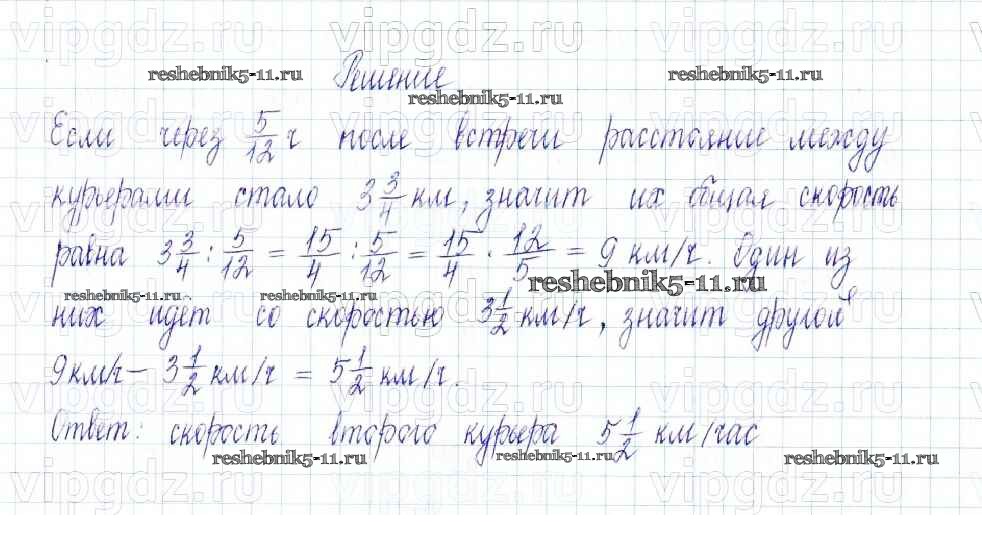 vipgdz.ru vipgdz.ru vipgdz.ru
reshebnik5-11.ru Решение reshebnik5-11.ru
reshebnik5-11.ru
Если через 5/12 ч после встречи расстояние между
курьерами стало 3 3/4 км, значит их общая скорость
равна 3 3/4 : 5/12 = 15/4 : 5/12 = 15/4 · 12/5 = 9 км/ч. Один из
reshebnik5-11.ru reshebnik5-11.ru reshebnik5-11.ru
них идёт со скоростью 3 1/2 км/ч, значит другой
9 км/ч – 3 1/2 км/ч = 5 1/2 км/ч.
vipgdz.ru vipgdz.ru vipgdz.ru
Ответ: скорость второго курьера 5 1/2 км/час
reshebnik5-11.ru reshebnik5-11.ru reshebnik5-11.ru
vipgdz.ru vipgdz.ru vipgdz.ru